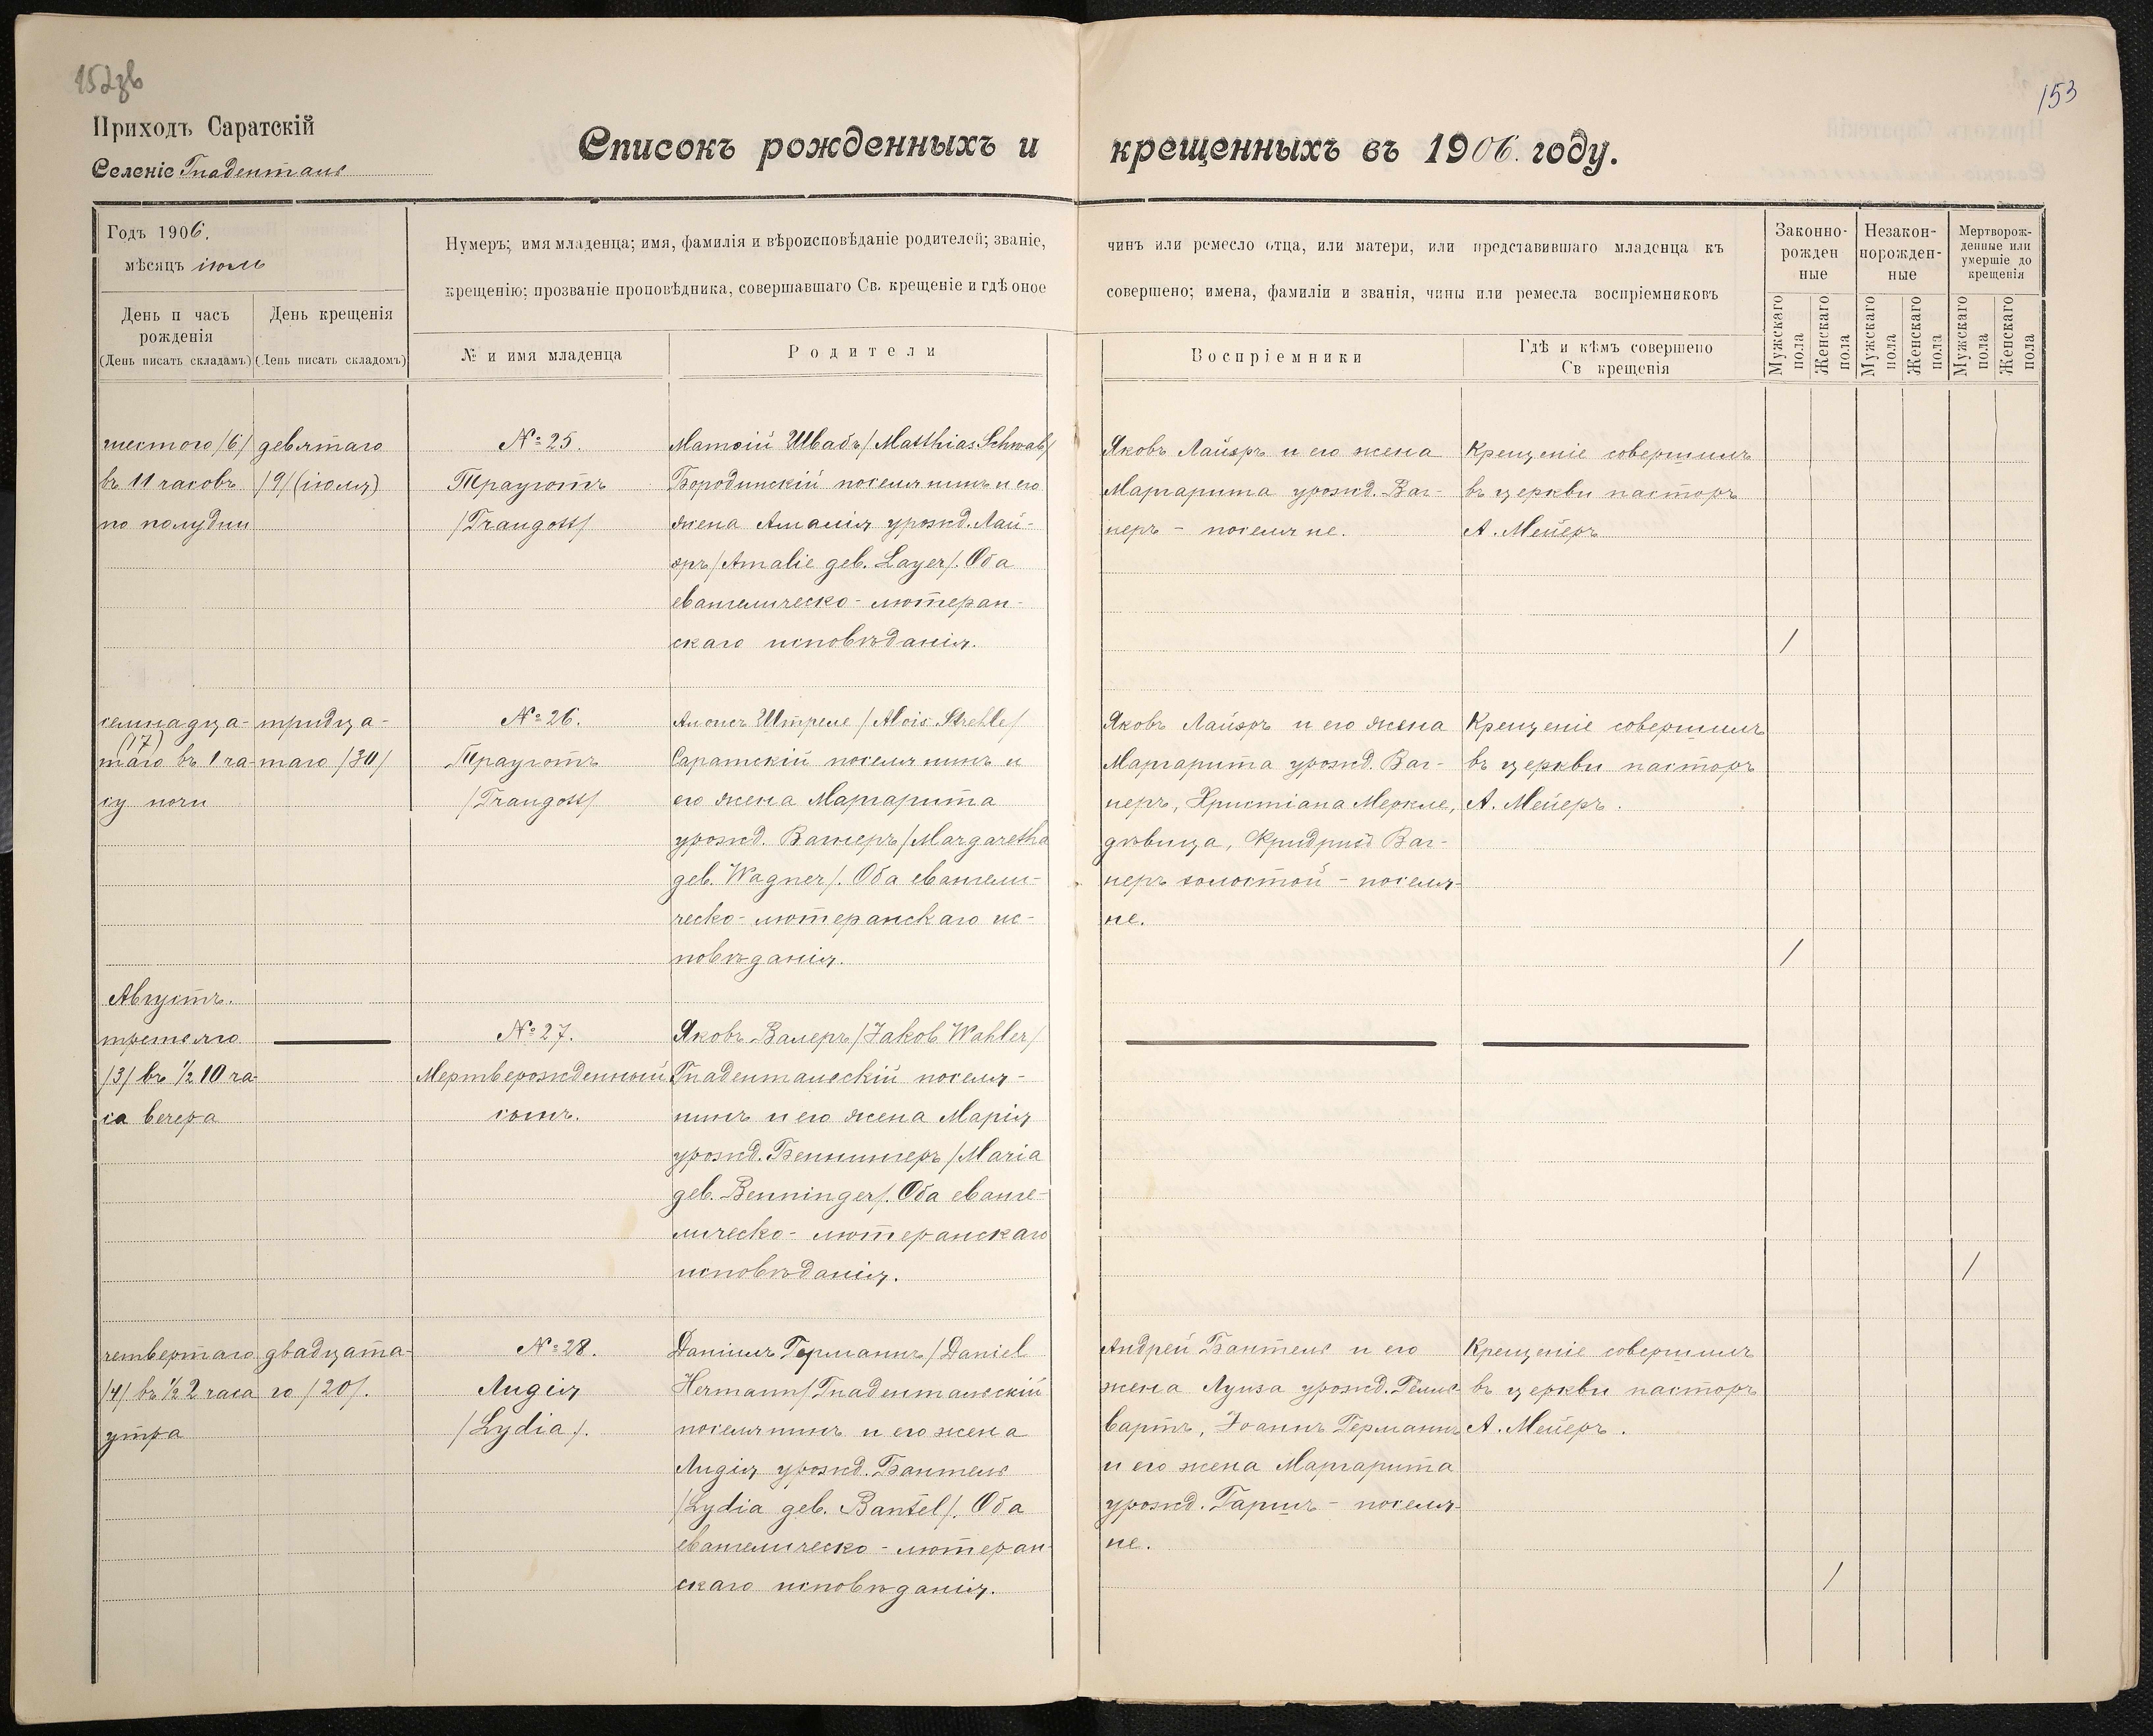 152зв
153
Приходъ Саратскій
Селеніе Гнаденталь
Списокъ рожденныхъ и крещенныхъ въ 1906. году.
Годъ 1906.
мѣсяцъ іюль
Нумеръ; имя младенца; имя, фамилія и вѣроисповѣданіе родителей; званіе,
чинъ или ремесло отца, или матери, или представившаго младенца къ
крещенію; прозваніе проповѣдника, совершавшаго Св. крещеніе и гдѣ оное
совершено; имена, фамиліи и званія, чины или ремесла воспріемниковъ
Законно-
рожден
ные
Незакон-
норожден-
ные
Мертворож-
денные или
умершіе до
крещенія
День и часъ
рожденія
(День писать складамъ)
День крещенія
(День писать складомъ)
№ и имя младенца
Родители
Воспріемники
Гдѣ и кѣмъ совершено
Св крещенія
Мужскаго
пола
Женскаго
пола
Мужскаго
пола
Женскаго
пола
Мужскаго
пола
Женскаго
пола
шестого /6/
въ 11 часовъ
по полудни
девятаго
/9/ (іюля)
№ 25.
Трауготъ
/Traugott/
Матѳій Швабъ /Matthias Schwab/
Бородинскій поселянинъ и его
жена Амалія урожд. Лай-
эръ /Amalie geb. Layer/. Оба
евангелическо-лютеран-
скаго исповѣданія.
Яковъ Лайэръ и его жена
Маргарита урожд. Ваг-
неръ - поселяне.
Крещеніе совершилъ
въ церкви пасторъ
А. Мейеръ
/
семнадца-
(17)
таго въ 1 ча-
су ночи
тридца-
таго /30/
№ 26.
Трауготъ
/Traugott/
Алоисъ Штреле /Alois Strehle/
Саратскій поселянинъ и
его жена Маргарита
урожд. Вагнеръ /Margaretha
geb. Wagner/. Оба евангели-
ческо-лютеранскаго ис-
повѣданія.
Яковъ Лайэръ и его жена
Маргарита урожд. Ваг-
неръ, Христіана Меркле,
дѣвица, Фридрихъ Ваг-
неръ холостой - поселя-
не.
Крещеніе совершилъ
въ церкви пасторъ
А. Мейеръ.
/
Августъ.
третьяго
/3/ въ ½ 10 ча-
са вечера
№ 27.
Мертворожденный
сынъ.
Яковъ Валеръ /Jakob Wahler/
Гнадентальскій поселя-
нинъ и его жена Марія
урожд. Беннингеръ /Maria
geb. Benninger/. Оба еванге-
лическо-лютеранскаго
исповѣданія.
/
четвертаго
/4/ въ ½ 2 часа
утра
двадцата-
го /20/.
№ 28.
Лидія
/Lydia/.
Даніилъ Германнъ /Daniel
Hermann/ Гнадентальскій
поселянинъ и его жена
Лидія урожд. Бантель
/Lydia geb. Bantel/. Оба
евангелическо-лютеран-
скаго исповѣданія.
Андрей Бантель и его
жена Луиза урожд. Гелль-
вартъ, Іоаннъ Германнъ
и его жена Маргарита
урожд. Гаршъ - поселя-
не.
Крещеніе совершилъ
въ церкви пасторъ
А. Мейеръ.
/